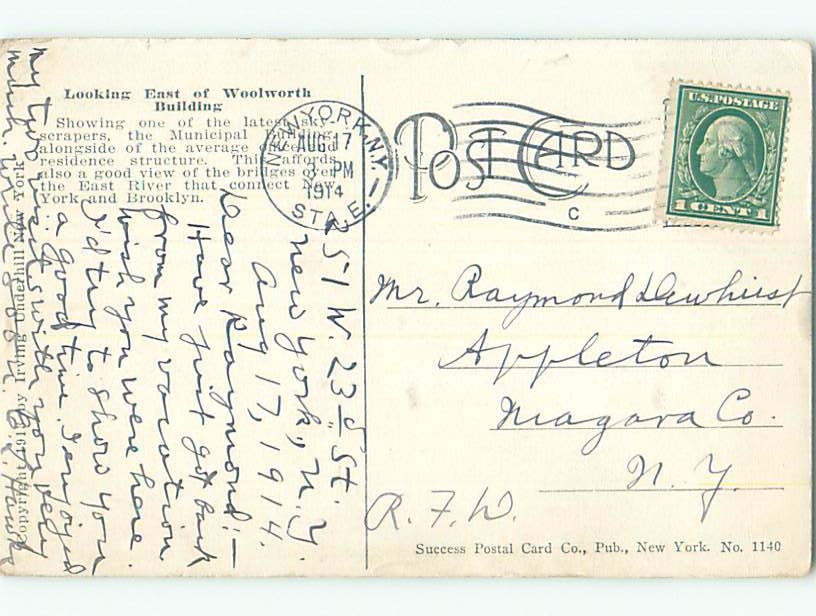 Looking East of Woolworth
Building
Showing one of the latest sky-
scrapers, the Municipal Building
alongside of the average office and
residence structure. This affords
also a good view of the bridges over
the East River that connect New
York and Brooklyn.
NEW YORK, N.Y.
AUG 17
PM
1914
STA. E.
POST CARD
C
U.S. POSTAGE
1 CENT 1
251 W. 23d St.
New York, N.Y.
Aug 17, 1914.
Dear Raymond:—
Have just got back
from my vacation
wish you were here.
I'd try to show you
a good time. I enjoyed
my two visits with you very
much.
Mr. Raymond Dewhirst
Appleton
Niagara Co.
N. Y.
R. F. D.
Copyright 1912 by Irving Underhill New York
Success Postal Card Co., Pub., New York. No. 1140